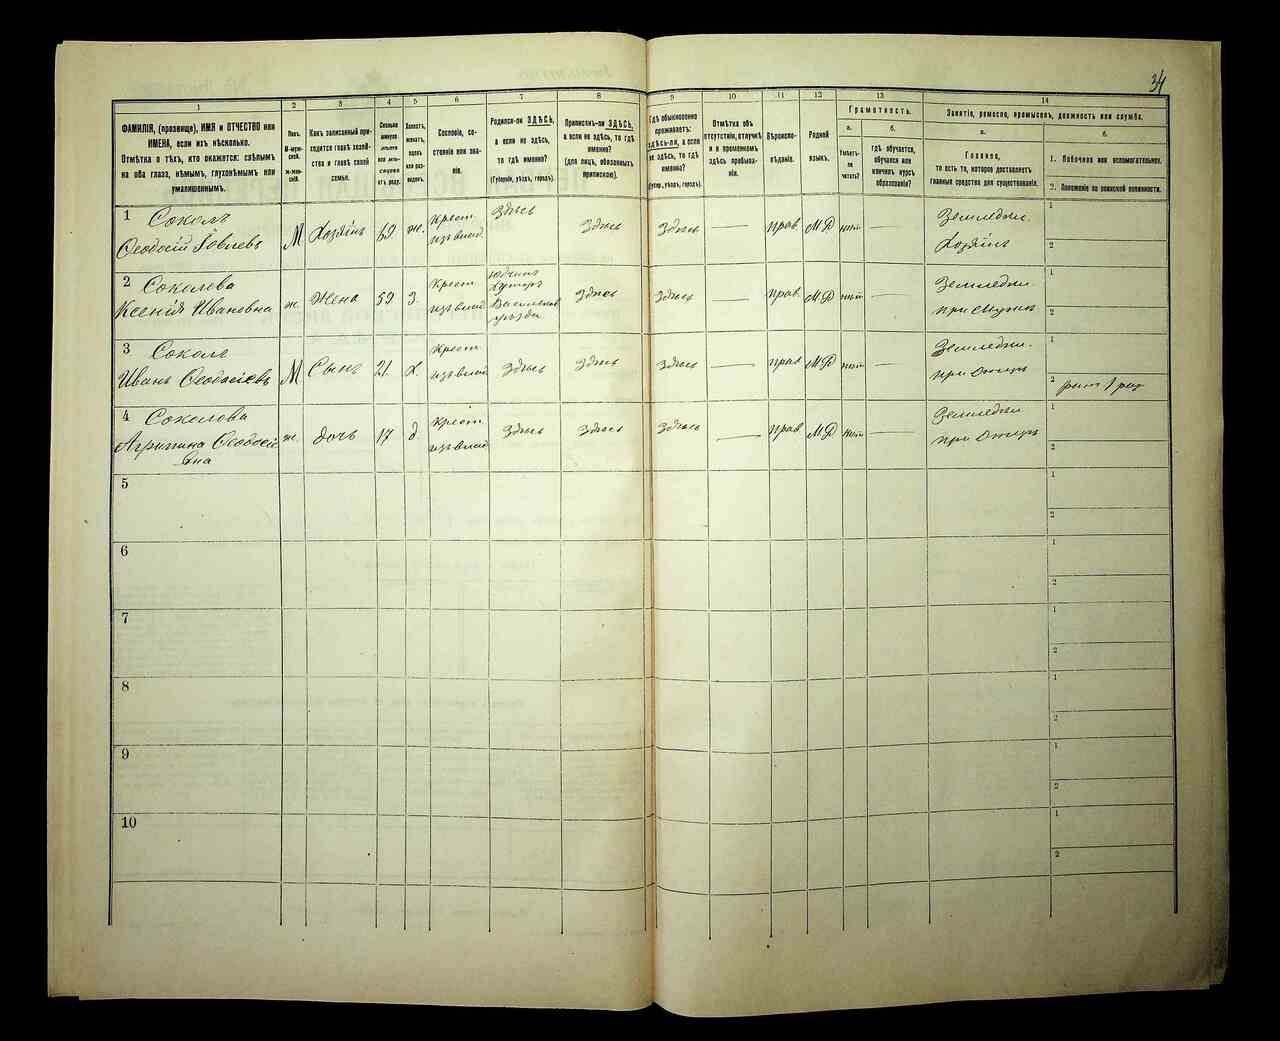 34
1
ФАМИЛІЯ, (прозвище), ИМЯ и ОТЧЕСТВО или
ИМЕНА, если ихъ нѣсколько.
Отмѣтка о тѣхъ, кто окажется: слѣпымъ
на оба глаза, нѣмымъ, глухонѣмымъ или
умалишеннымъ.
2
Полъ.
М-муж-
ской.
ж-жен-
скій.
3
Какъ записанный при-
ходится главѣ хозяй-
ства и главѣ своей
семьи.
4
Сколько
минуло
лѣтъ
или мѣся-
цевъ
отъ роду.
5
Холостъ,
женатъ,
вдовъ
или раз-
веденъ.
6
Сословіе, со-
стояніе или зва-
ніе.
7
Родился-ли ЗДѢСЬ,
а если не здѣсь,
то гдѣ именно?
(Губернія, уѣздъ, городъ).
8
Приписанъ-ли ЗДѢСЬ,
а если не здѣсь, то гдѣ
именно?
(для лицъ, обязанныхъ
припискою).
9
Гдѣ обыкновенно
проживаетъ:
ЗДѢСЬ-ЛИ, а если
не здѣсь, то гдѣ
именно?
(Губер., уѣздъ, городъ).
10
Отмѣтка объ
отсутствіи, отлучкѣ
и о временномъ
здѣсь пребыва-
ніи.
11
Вѣроиспо-
вѣданіе.
12
Родной
языкъ.
13
Грамотность.
а.
Умѣетъ-
ли
читать?
б.
Гдѣ обучается,
обучался или
кончилъ курсъ
образованія?
14
Занятіе, ремесло, промыселъ, должность или служба.
а.
Главное,
то есть то, которое доставляетъ
главныя средства для существованія.
б.
1. Побочное или вспомогательное.
2. Положеніе по воинской повинности.
1 Соколъ
Ѳеодосій Іовлевъ
М Хозяинъ 69 ж. Крест. изъ влад. Здѣсь Здѣсь Здѣсь — прав. МР нѣтъ — Земледѣл. Хозяинъ
1
2
2 Соколова
Ксенія Ивановна
ж. Жена 59 З. Крест. изъ влад. Хуторъ уѣзда Здѣсь Здѣсь — прав. МР нѣтъ — Земледѣл. при мужѣ
1
2
3 Соколъ
Иванъ Ѳеодосіевъ
М Сынъ 21 Х. Крест. изъ влад. Здѣсь Здѣсь Здѣсь — прав МР нѣтъ — Земледѣл. при Отцѣ
1
2 рат 1 раз
4 Соколова
Агрипина Ѳеодосіе
вна
ж. дочь 17 д. Крест. изъ влад. Здѣсь Здѣсь Здѣсь — прав МР нѣтъ — Земледѣл. при Отцѣ
1
2
5
1
2
6
1
2
7
1
2
8
1
2
9
1
2
10
1
2